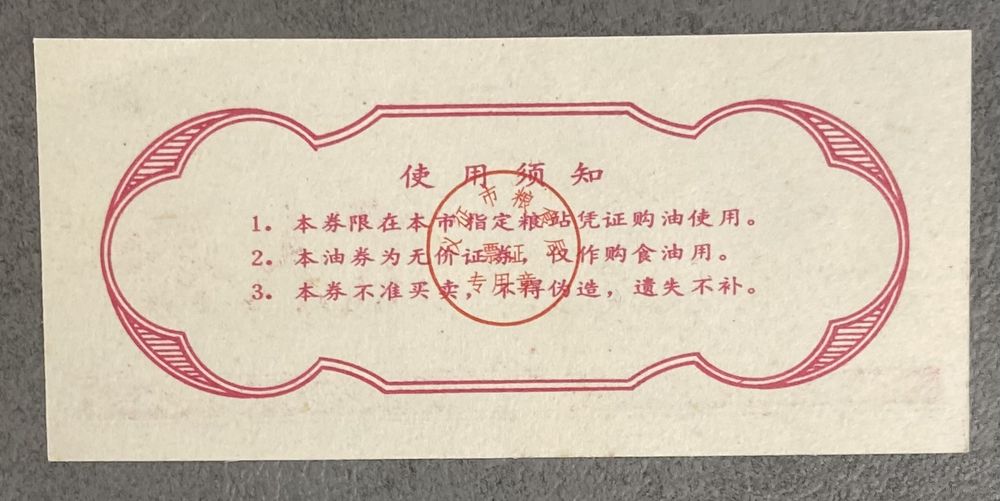 使用须知
1. 本券限在本市指定粮站凭证购油使用。
2. 本油券为无价证券，仅作购食油用。
3. 本券不准买卖，不得伪造，遗失不补。
市粮食局
票证
专用章